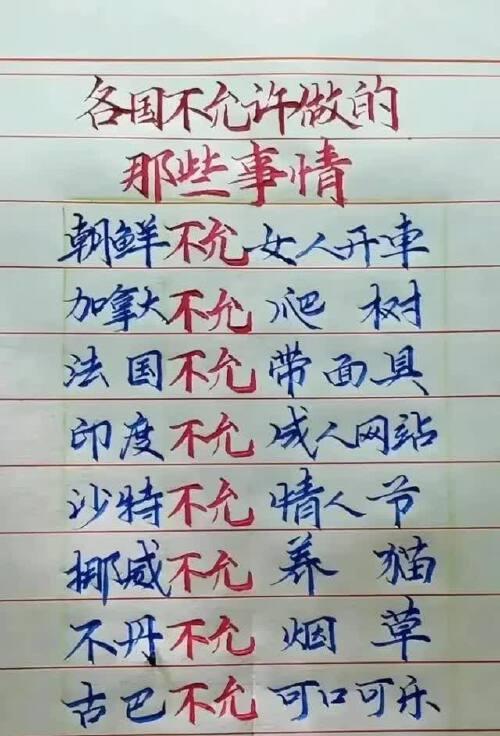 各国不允许做的
那些事情
朝鲜不允女人开車
加拿大不允爬树
法国不允带面具
印度不允成人网站
沙特不允情人节
挪威不允养猫
不丹不允烟草
古巴不允可口可乐